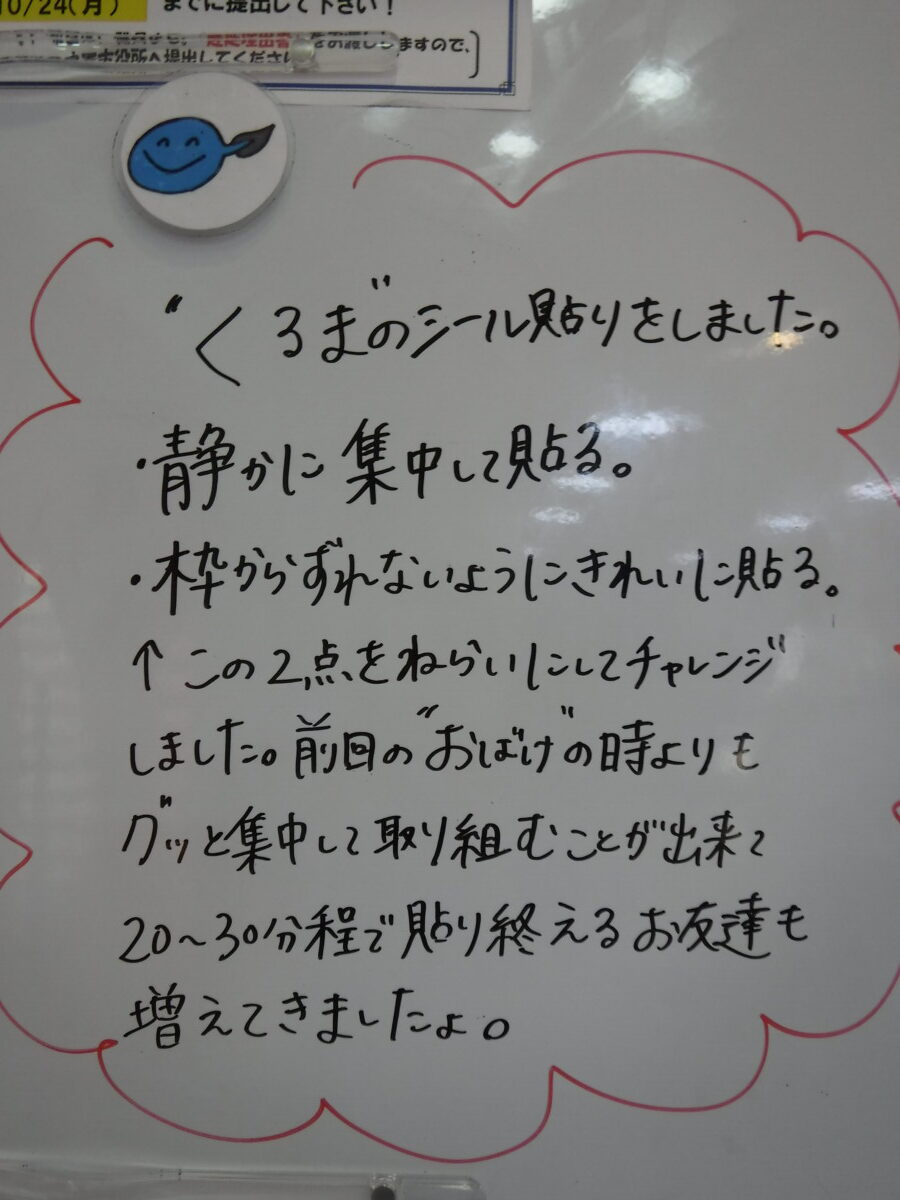 10/24(月) までに提出して下さい!
市役所へ提出してくださ
ますので、
"くるま"のシール貼りをしました。
・静かに集中して貼る。
・枠からずれないようにきれいに貼る。
↑この2点をねらいにしてチャレンジ
しました。前回の"おばけ"の時よりも
グッと集中して取り組むことが出来て
20~30分程で貼り終えるお友達も
増えてきましたよ。